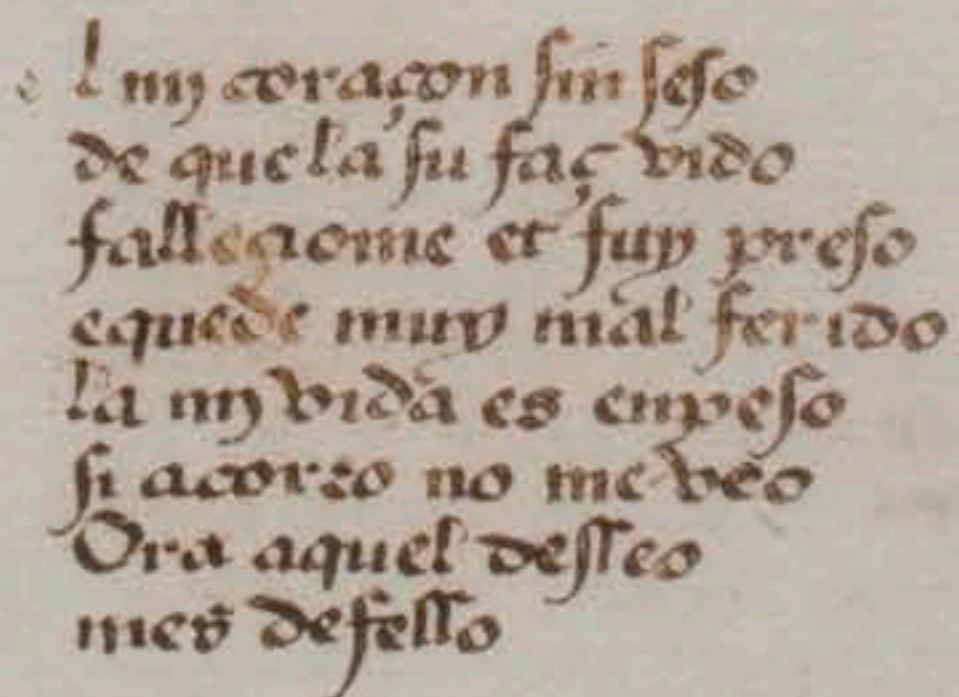 e l my coraçon sin seso
de que la su faç vido
falleçiome et fuy preso
equede muy mal ferido
la my vida es enpeso
si acorro no me veo
Ora aquel desseo
mes defesso